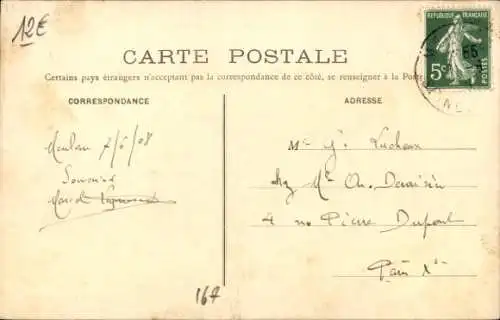 12€
CARTE POSTALE
Certains pays étrangers n'acceptant pas la correspondance de ce côté, se renseigner à la Poste
CORRESPONDANCE
ADRESSE
REPUBLIQUE FRANÇAISE
5c
POSTES
Meulan 7/6/08
Souvenir
Mr
chez Mr Ch.
4 rue Pierre Dupont
Paris Xe
167